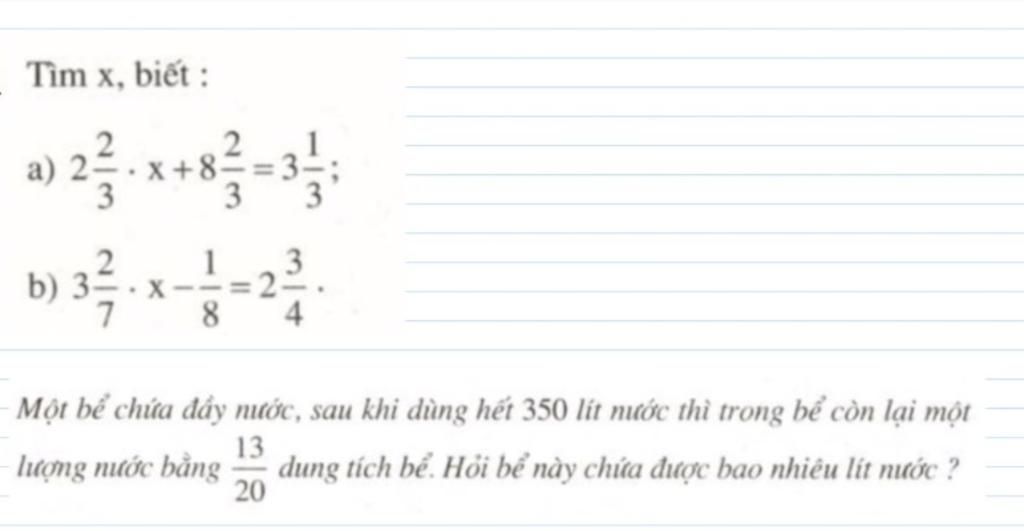 Tìm x, biết :
a) 2 2/3 . x + 8 2/3 = 3 1/3 ;
b) 3 2/7 . x − 1/8 = 2 3/4 .
Một bể chứa đầy nước, sau khi dùng hết 350 lít nước thì trong bể còn lại một
lượng nước bằng 13/20 dung tích bể. Hỏi bể này chứa được bao nhiêu lít nước ?